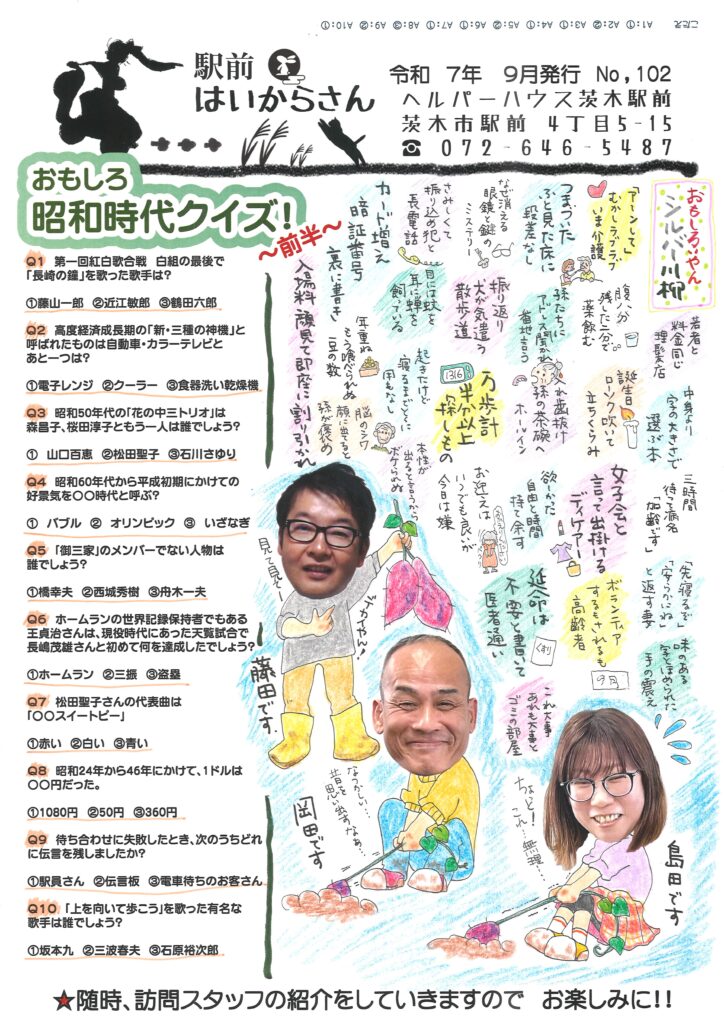 こたえ　A1:① A2:② A3:① A4:① A5:② A6:① A7:① A8:③ A9:② A10:①
駅前
はいからさん
令和　7年　9月発行　No,102
ヘルパーハウス茨木駅前
茨木市駅前　4丁目5-15
☎　072-646-5487
おもしろ
昭和時代クイズ!
～前半～
Q1　第一回紅白歌合戦　白組の最後で
「長崎の鐘」を歌った歌手は?
①藤山一郎　②近江敏郎　③鶴田六郎
Q2　高度経済成長期の「新・三種の神機」と
呼ばれたものは自動車・カラーテレビと
あと一つは?
①電子レンジ　②クーラー　③食器洗い乾燥機
Q3　昭和50年代の「花の中三トリオ」は
森昌子、桜田淳子ともう一人は誰でしょう?
①　山口百恵　②松田聖子　③石川さゆり
Q4　昭和60年代から平成初期にかけての
好景気を〇〇時代と呼ぶ?
①　バブル　②　オリンピック　③　いざなぎ
Q5　「御三家」のメンバーでない人物は
誰でしょう?
①橋幸夫　②西城秀樹　③舟木一夫
Q6　ホームランの世界記録保持者でもある
王貞治さんは、現役時代にあった天覧試合で
長嶋茂雄さんと初めて何を達成したでしょう?
①ホームラン　②三振　③盗塁
Q7　松田聖子さんの代表曲は
「〇〇スイートピー」
①赤い　②白い　③青い
Q8　昭和24年から46年にかけて、1ドルは
〇〇円だった。
①1080円　②50円　③360円
Q9　待ち合わせに失敗したとき、次のうちどれ
に伝言を残しましたか?
①駅員さん　②伝言板　③電車待ちのお客さん
Q10　「上を向いて歩こう」を歌った有名な
歌手は誰でしょう?
①坂本九　②三波春夫　③石原裕次郎
おもしろいやん
シルバー川柳
「アーンして」
むかしラブラブ
いま介護
つまづいた
ふと見た床に
段差なし
なぜ消える
眼鏡と鍵の
ミステリー
さみしくて
振り込め犯と
長電話
カード増え
暗証番号
裏に書き
入場料
顔見て即座に
割り引かれ
若者と
料金同じ
理髪店
腹八分
残した二分で
薬飲む
孫たちに
アドレス聞かれ
番地言う
振り返り
犬が気遣う
散歩道
目には蚊を
耳には蝉を
飼っている
耳重ね
もう喰べられぬ
豆の数
中身より
字の大きさで
選ぶ本
誕生日
ローソク吹いて
立ちくらみ
入れ歯抜け
孫の茶碗へ
ホールイン
万歩計
半分以上
探しもの
1316
起きたけど
寝るまでとくに
用もなし
脳のシワ
顔に出ると
孫が褒め
三時間
待って病名
「加齢です」
女子会と
言って出掛ける
デイケアー
欲しかった
自由と時間
持て余す
お迎えは
いつでも良いが
今日は嫌
本性が
出ると言うから
ボケられぬ
「先寝るぞ」
「安らかにね」
と返す妻
ボランティア
するもされるも
高齢者
延命は
不要と書いて
医者通い
くすり
味のある
字とほめられた
手の震え
9月
これ大事
あれも大事と
ゴミの部屋
見て見て〜
デカイやん!
藤田です
なつかしい…
昔を思い出すなぁ…
岡田です
ちょと!
これ…無理…
島田です
★随時、訪問スタッフの紹介をしていきますので　お楽しみに!!